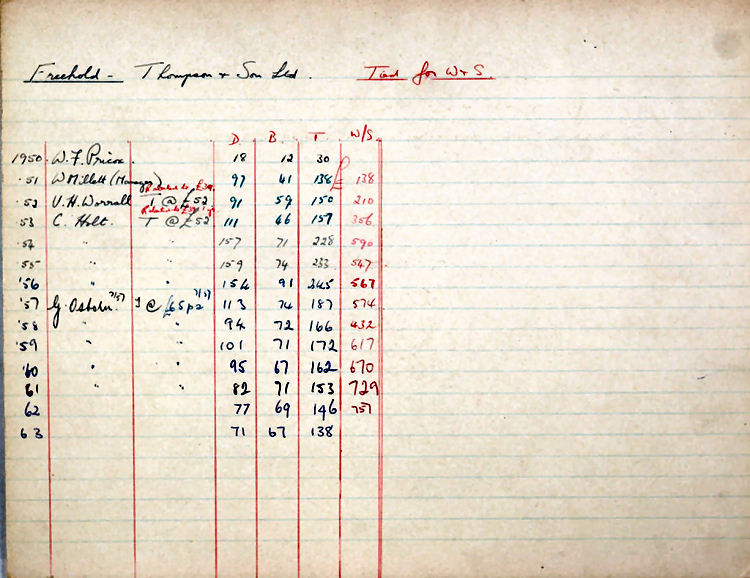 Freehold - Thompson & Son Ltd. Tied for W & S.
D. B. T. W/S.
1950 W. F. Pricor. 18 12 30
'51 W Millett (Manager) 97 41 138 £ 138
Rebated to £39.
'52 V. H. Worrall T @ £52 91 59 150 210
Rebated to £39
'53 C. Holt. T @ £52 111 46 157 356
'54 " " 157 71 228 590
'55 " " 159 74 233 547
'56 " " 154 91 245 567
'57 G. Osborn. 7/57 T @ £65 pa 7/57 113 74 187 574
'58 " " 94 72 166 432
'59 " " 101 71 172 617
'60 " " 95 67 162 670
61 " " 82 71 153 729
62 77 69 146 757
63 71 67 138